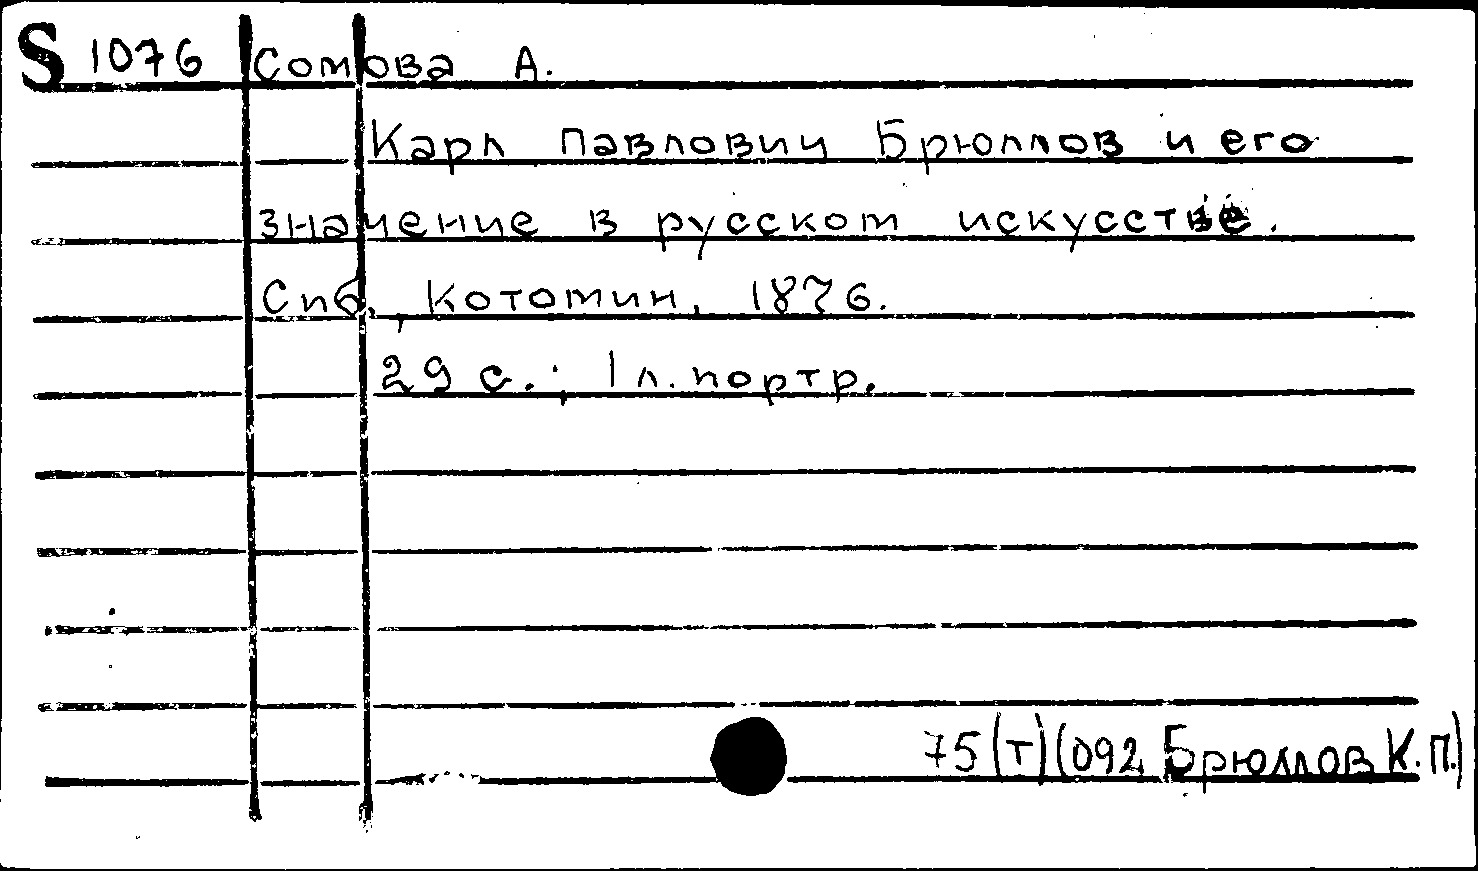 S 1076 Сомова А.
Карл Павлович Брюллов и его
значение в русском искусстве.
Спб., Котомин, 1876.
29 с.; 1 л. портр.
75(Т)(092 Брюллов К.П.)